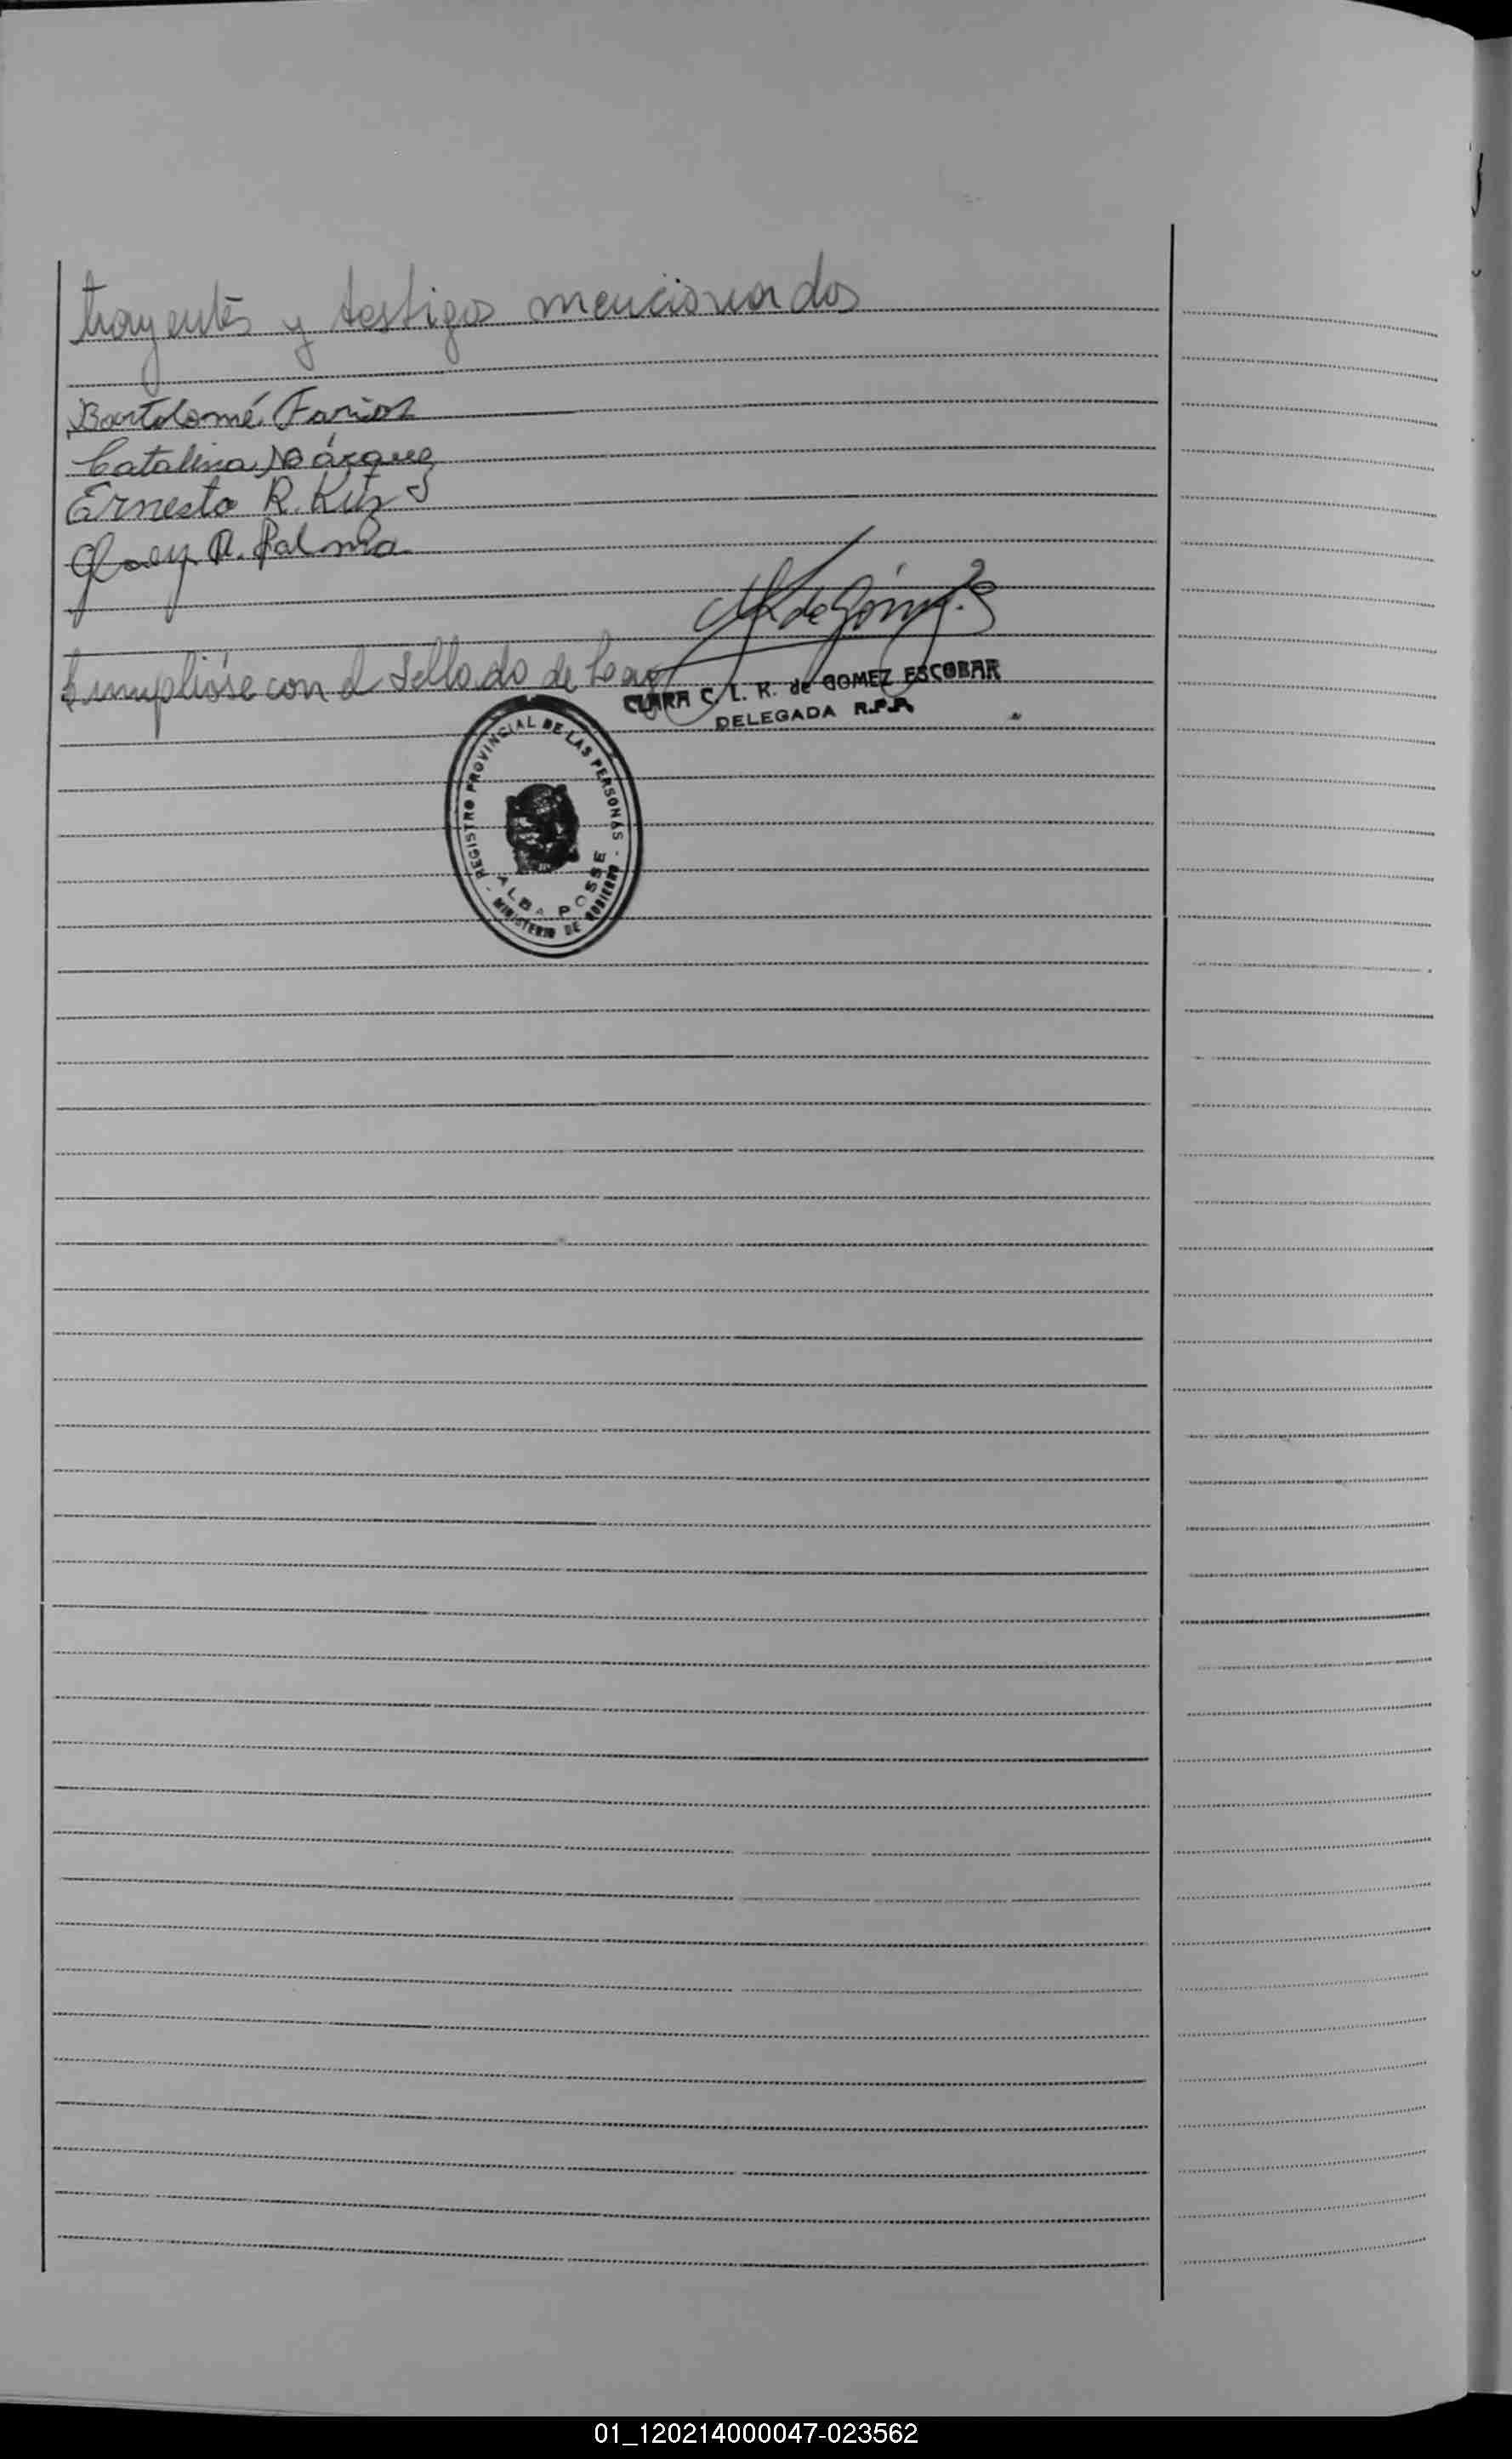 trayentes y testigos mencionados
Bartolomé Farias
Catalina Márquez
Ernesto R. Kutz
R. Palma
Cumplióse con el Sellado de Ley
CLARA C. L. R. de GOMEZ ESCOBAR
DELEGADA R.P.P.
REGISTRO PROVINCIAL DE LAS PERSONAS
ALBA POSSE
MINISTERIO DE GOBIERNO
01_120214000047-023562